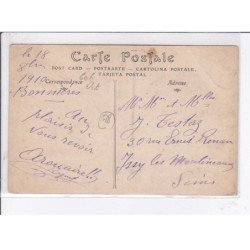 Carte Postale
POST CARD — POSTKARTE — CARTOLINA POSTALE
TARJETA POSTAL
Correspondance
Adresse
le 18
1910
Bonnières
Au
plaisir de
vous revoir
Mr Mme et Melles
J. Testaz
30 rue Ernest Renan
Issy les Moulineaux
Seine